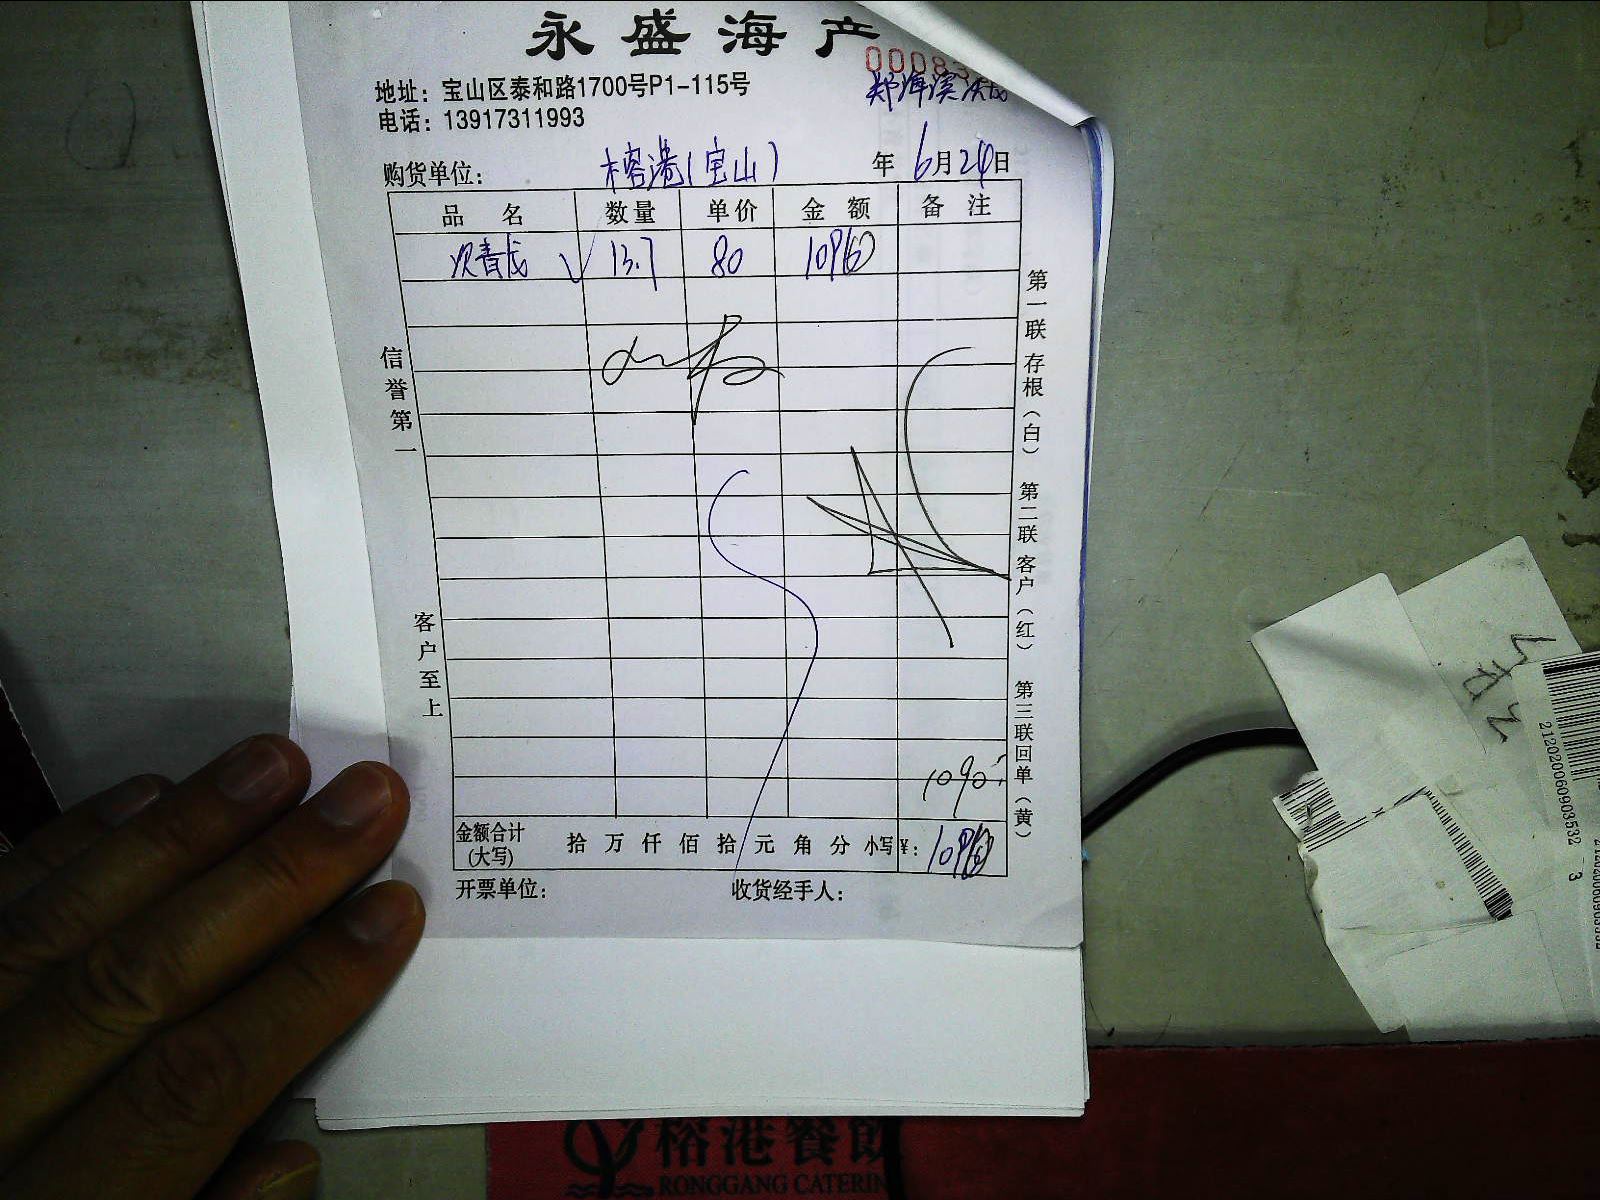 永盛海产
00083
地址：宝山区泰和路1700号P1-115号
电话：13917311993
购货单位： 榕港(宝山) 年 6月24日
品名 数量 单价 金额 备注
13.7 80 1096
信誉第一
客户至上
第一联 存根（白） 第二联 客户（红） 第三联 回单（黄）
1090
金额合计(大写) 拾 万 仟 佰 拾 元 角 分 小写¥： 1096
开票单位： 收货经手人：
212020060903532 3
榕港餐飲
RONGGANG CATERIN